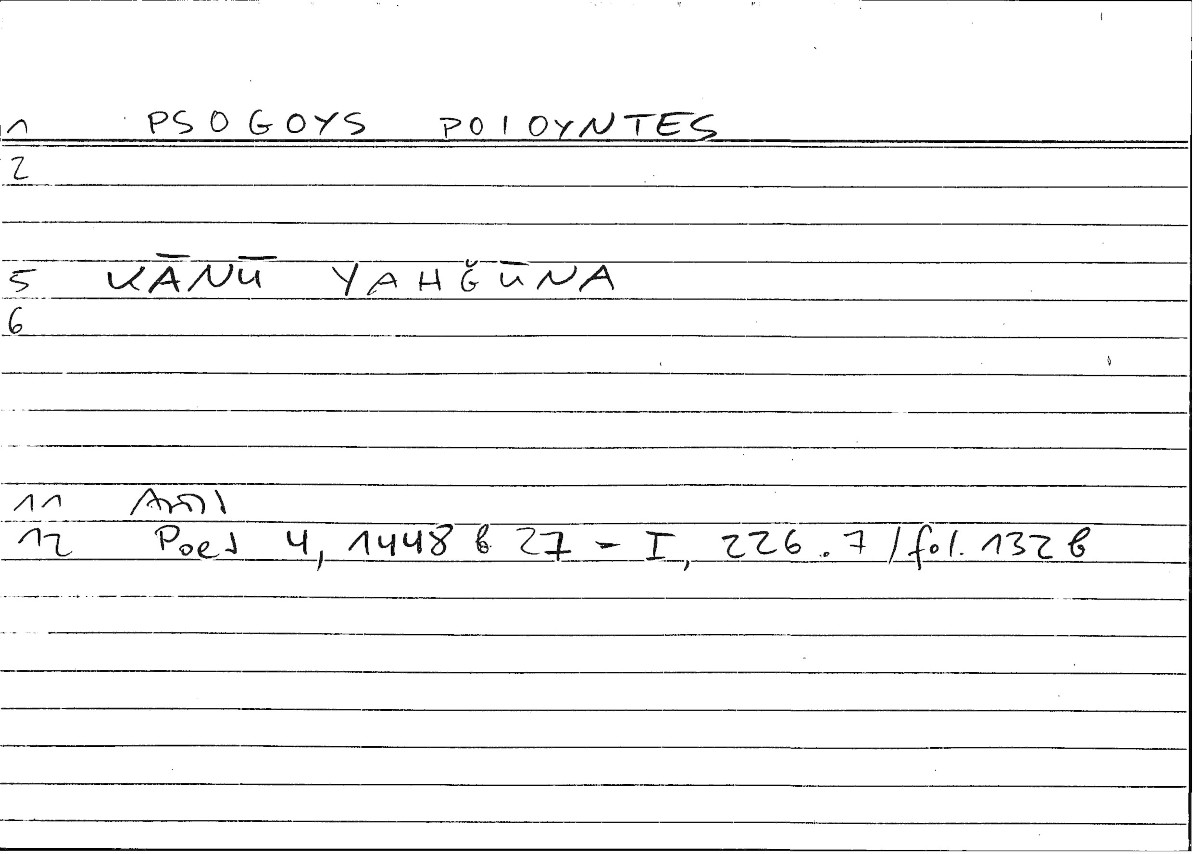 1 PSOGOYS POIOYNTES
2
5 KĀNŪ YAHǦŪNA
6
11 Arist
12 Poet 4, 1448 b 27 = I, 226.7 / fol. 132 b